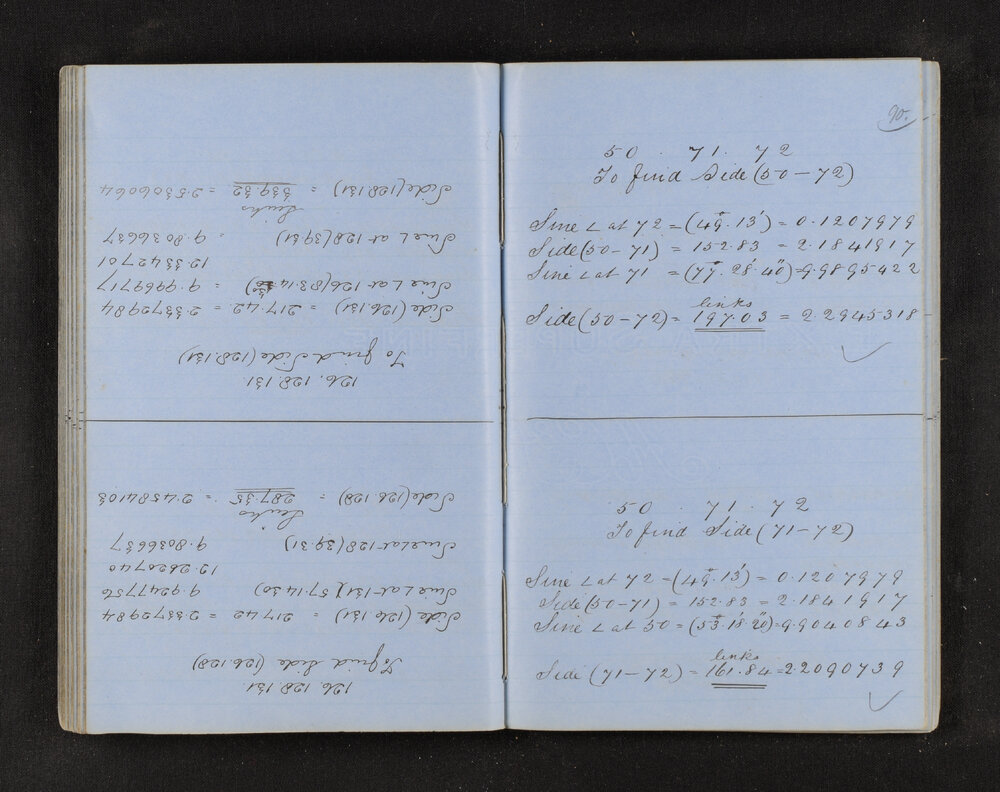 126 128 131
To find Side (126.128)
Side (126.131) = 217.42 = 2.3372984
Sine L at 131 (57.14.30) 9.9247756
12.2620740
Sine L at 128 (39.31) 9.8036637
Links
Side (126 128) = 287.35 = 2.4584103
126. 128. 131.
To find Side (128.131)
Side (126.131) = 217.42 = 2.3372984
Sine L at 126 (83.14.30) = 9.9969717
12.3342701
Sine L at 128 (39.31) = 9.8036637
Links
Side (128.131) = 339.32 = 2.5306064
90.
50 . 71 . 72
To find Side (50 – 72)
Sine ∠ at 72 = (49°. 13') = 0.1207979
Side (50 – 71) = 152.83 = 2.1841917
Sine ∠ at 71 = (77°. 28'. 40") = 9.9895422
links
Side (50 – 72) = 197.03 = 2.2945318
50 . 71 . 72
To find Side (71 – 72)
Sine ∠ at 72 = (49°. 13') = 0.1207979
Side (50 – 71) = 152.83 = 2.1841917
Sine ∠ at 50 = (53°. 18'. 20") = 9.9040843
links
Side (71 – 72) = 161.84 = 2.2090739